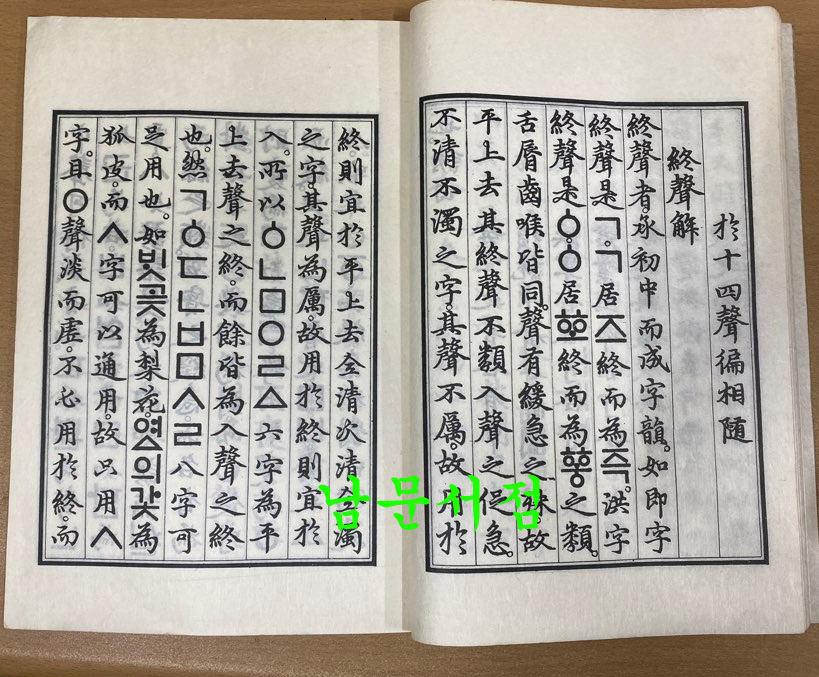 於十四聲徧相隨
終聲解
終聲者。承初中而成字韻。如即字
終聲是ㄱ。ㄱ居즈終而為즉。洪字
終聲是ㆁ。ㆁ居ᅘᅩ終而為ᅘᅩᇰ之類。
舌脣齒喉皆同。聲有緩急之殊。故
平上去其終聲不類入聲之促急。
不清不濁之字。其聲不厲。故用於
終則宜於平上去。全清次清全濁
之字。其聲為厲。故用於終則宜於
入。所以ㆁㄴㅁㅇㄹㅿ六字為平
上去聲之終。而餘皆為入聲之終
也。然ㄱㆁㄷㄴㅂㅁㅅㄹ八字可
足用也。如빗곶為梨花。여ᇫ의갗為
狐皮。而ㅅ字可以通用。故只用ㅅ
字。且ㅇ聲淡而虛。不必用於終。而
남문서점